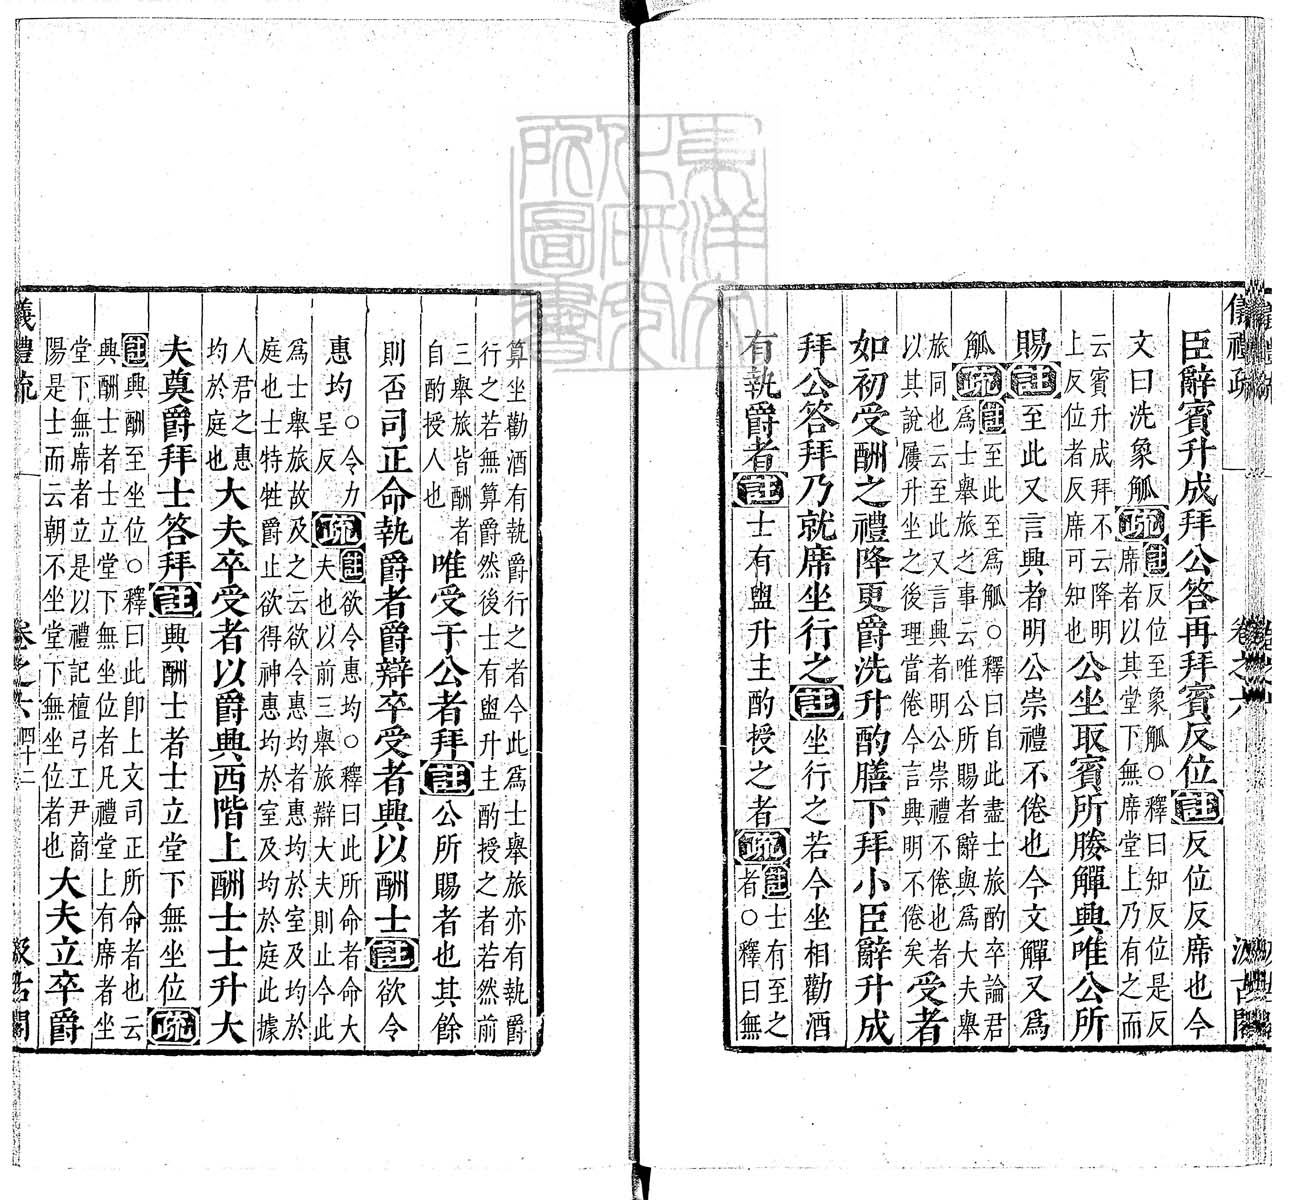 儀禮疏 卷之六 汲古閣
臣辭賓升成拜公答再拜賓反位註反位反席也今
文曰洗象觚疏註反位至象觚○釋曰知反位是反
席者以其堂下無席堂上乃有之而
云賓升成拜不云降明
上反位者反席可知也公坐取賓所媵觶興唯公所
賜註至此又言興者明公崇禮不倦也今文觶又爲
觚疏註至此至爲觚○釋曰自此盡士旅酌卒論君
爲士舉旅之事云唯公所賜者辭與爲大夫舉
旅同也云至此又言興者明公崇禮不倦也者
以其說屨升坐之後理當倦今言興明不倦矣受者
如初受酬之禮降更爵洗升酌膳下拜小臣辭升成
拜公答拜乃就席坐行之註坐行之若今坐相勸酒
有執爵者註士有盥升主酌授之者疏註士有至之
者○釋曰無
算坐勸酒有執爵行之者今此爲士舉旅亦有執爵
行之若無算爵然後士有盥升主酌授之者若然前
三舉旅皆酬者
自酌授人也唯受于公者拜註公所賜者也其餘
則否司正命執爵者爵辯卒受者興以酬士註欲令
惠均○令力
呈反疏註欲令惠均○釋曰此所命者命大
夫也以前三舉旅辯大夫則止今此
爲士舉旅故及之云欲令惠均者惠均於室及均於
庭也士特牲爵止欲得神惠均於室及均於庭此據
人君之惠
均於庭也大夫卒受者以爵興西階上酬士士升大
夫奠爵拜士答拜註興酬士者士立堂下無坐位疏
註興酬至坐位○釋曰此卽上文司正所命者也云
興酬士者士立堂下無坐位者凡禮堂上有席者坐
堂下無席者立是以禮記檀弓工尹商
陽是士而云朝不坐堂下無坐位者也大夫立卒爵
儀禮疏 卷之六 四十二 汲古閣
東洋文化研究所圖書